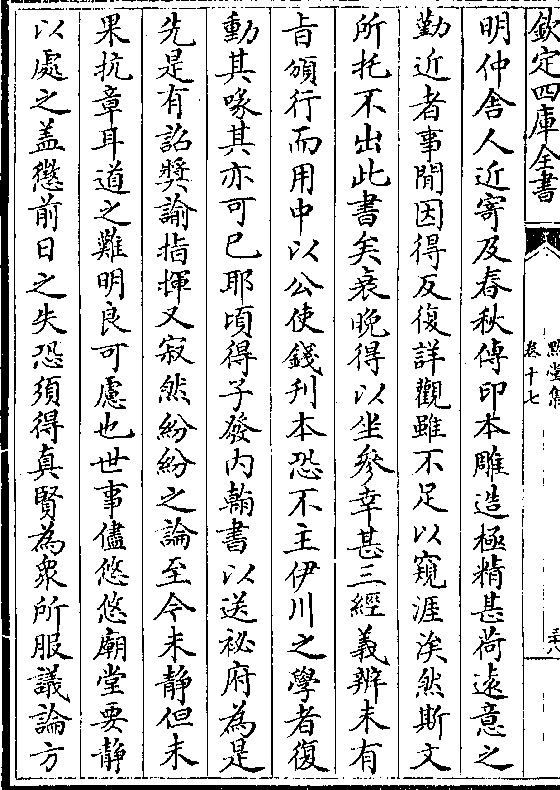 欽定四庫全書
卷十七
明仲舍人近寄及春秋傳印本雕造極精甚荷遠意之
勤近者事閒因得反復詳觀雖不足以窺涯涘然斯文
所托不出此書矣衰晚得以坐參幸甚三經義辨未有
㫖頒行而用中以公使錢刊本恐不主伊川之學者復
動其喙其亦可已耶頃得子發内翰書以送祕府為是
先是有詔奬諭指揮又寂然紛紛之論至今未靜但未
果抗章耳道之難明良可慮也世事儘悠悠廟堂要靜
以處之盖懲前日之失恐須得真賢為衆所服議論方